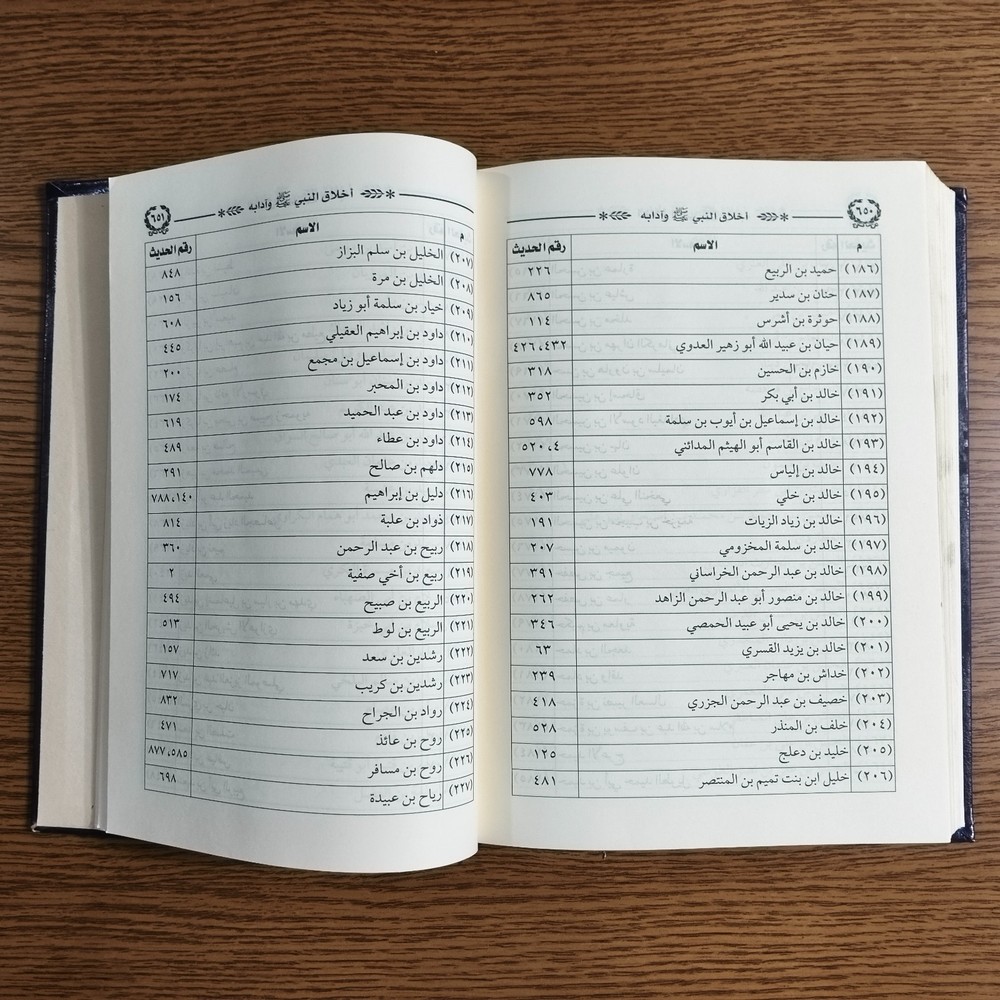 ٦٥٠ أخلاق النبي ﷺ وآدابه
م الاسم رقم الحديث
(١٨٦) حميد بن الربيع ٢٢٦
(١٨٧) حنان بن سدير ٨٦٥
(١٨٨) حوثرة بن أشرس ١١٤
(١٨٩) حيان بن عبيد الله أبو زهير العدوي ٤٣٢، ٤٢٦
(١٩٠) خازم بن الحسين ٣١٨
(١٩١) خالد بن أبي بكر ٣٥٢
(١٩٢) خالد بن إسماعيل بن أيوب بن سلمة ٥٩٨
(١٩٣) خالد بن القاسم أبو الهيثم المدائني ٤، ٥٢٠
(١٩٤) خالد بن إلياس ٧٧٨
(١٩٥) خالد بن خلي ٤٠٣
(١٩٦) خالد بن زياد الزيات ١٩١
(١٩٧) خالد بن سلمة المخزومي ٢٠٧
(١٩٨) خالد بن عبد الرحمن الخراساني ٣٩١
(١٩٩) خالد بن منصور أبو عبد الرحمن الزاهد ٢٦٢
(٢٠٠) خالد بن يحيى أبو عبيد الحمصي ٣٤٦
(٢٠١) خالد بن يزيد القسري ٦٣
(٢٠٢) خداش بن مهاجر ٢٣٩
(٢٠٣) خصيف بن عبد الرحمن الجزري ٤١٨
(٢٠٤) خلف بن المنذر ٥٢٨
(٢٠٥) خليد بن دعلج ١٢٥
(٢٠٦) خليل ابن بنت تميم بن المنتصر ٤٨١
أخلاق النبي ﷺ وآدابه ٦٥١
م الاسم رقم الحديث
(٢٠٧) الخليل بن سلم البزاز ٨٤٨
(٢٠٨) الخليل بن مرة ١٥٦
(٢٠٩) خيار بن سلمة أبو زياد ٦٠٨
(٢١٠) داود بن إبراهيم العقيلي ٤٤٥
(٢١١) داود بن إسماعيل بن مجمع ٢٠٠
(٢١٢) داود بن المحبر ١٧٤
(٢١٣) داود بن عبد الحميد ٦١٩
(٢١٤) داود بن عطاء ٤٨٩
(٢١٥) دلهم بن صالح ٢٩١
(٢١٦) دليل بن إبراهيم ١٤٠، ٧٨٨
(٢١٧) ذواد بن علبة ٨١٤
(٢١٨) ربيح بن عبد الرحمن ٣٦٠
(٢١٩) ربيع بن أخي صفية ٢
(٢٢٠) الربيع بن صبيح ٤٩٤
(٢٢١) الربيع بن لوط ٥١٣
(٢٢٢) رشدين بن سعد ١٥٧
(٢٢٣) رشدين بن كريب ٧١٧
(٢٢٤) رواد بن الجراح ٨٣٢
(٢٢٥) روح بن عائذ ٤٧١
(٢٢٦) روح بن مسافر ٥٨٥، ٨٧٧
(٢٢٧) رياح بن عبيدة ٦٩٨